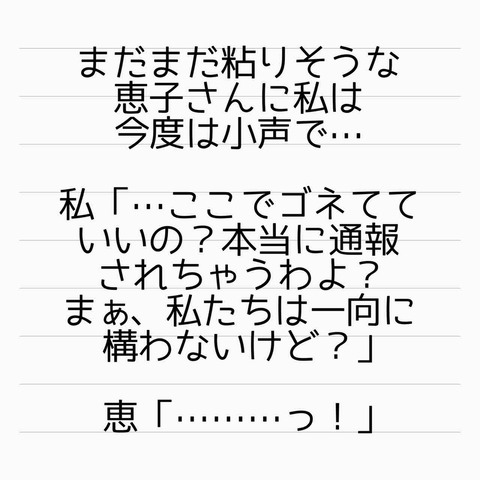 まだまだ粘りそうな
恵子さんに私は
今度は小声で…
私「…ここでゴネてて
いいの？本当に通報
されちゃうわよ？
まぁ、私たちは一向に
構わないけど？」
恵「………っ！」